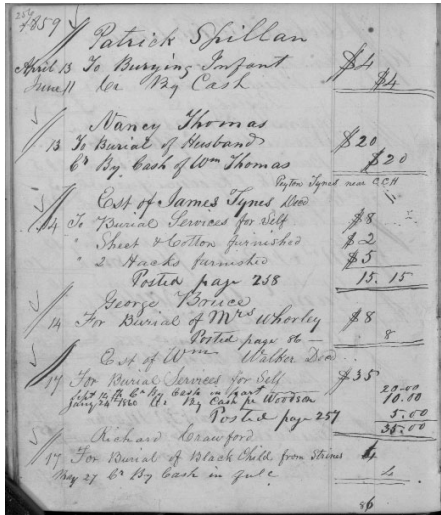 256
1859
Patrick Spillan
April 13 To Burying Infant $4
June 11 Cr By Cash $4
Nancy Thomas
13 To Burial of Husband $20
Cr By Cash of Wm Thomas $20
Peyton Tynes near C.C.H
Est of James Tynes Decd
14 To Burial Services for Self $8
" Sheet & Cotton furnished $2
" 2 Hacks furnished $5
Posted page 258 15.15
George Bruce
14 For Burial of Mrs Whorley $8
Posted page 86 8
Est of Wm Walker Decd
17 For Burial Services for Self $35
Sept 14th Cr By Cash in part 20.00
Jany 24th 1860 Cr By Cash Woodson 10.00
Posted page 257 5.00
35.00
Richard Crawford
17 For Burial of Black Child from Strines 4
May 27 Cr By Cash in full 4
86